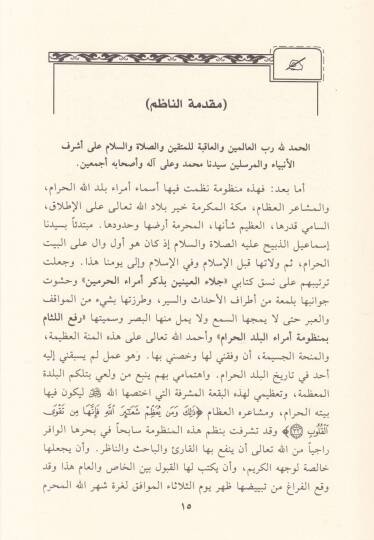 (مقدمة الناظم)
الحمد لله رب العالمين والعاقبة للمتقين والصلاة والسلام على أشرف
الأنبياء والمرسلين سيدنا محمد وعلى آله وأصحابه أجمعين.
أما بعد: فهذه منظومة نظمت فيها أسماء أمراء بلد الله الحرام،
والمشاعر العظام، مكة المكرمة خير بلاد الله تعالى على الإطلاق،
السامي قدرها، العظيم شأنها، المحرمة أرضها وحدودها. مبتدئاً بسيدنا
إسماعيل الذبيح عليه الصلاة والسلام إذ كان هو أول وال على البيت
الحرام، ثم ولاتها قبل الإسلام وفي الإسلام وإلى يومنا هذا. وجعلت
ترتيبهم على نسق كتابي «جلاء العينين بذكر أمراء الحرمين» وحشوت
جوانبها بلمعة من أطراف الأحداث والسير، وطرزتها بشيء من المواقف
والعبر حتى لا يمجها السمع ولا يمل منها البصر وسميتها «رفع اللثام
بمنظومة أمراء البلد الحرام» وأحمد الله تعالى على هذه المنة العظيمة،
والمنحة الجسيمة، أن وفقني لها وخصني بها. وهو عمل لم يسبقني إليه
أحد في تاريخ البلد الحرام. واهتمامي بهم ينبع من ولعي بتلكم البلدة
المعظمة، وتعظيمي لهذه البقعة المشرفة التي اختصها الله ﷻ ليكون فيها
بيته الحرام، ومشاعره العظام ﴿ذَٰلِكَ وَمَن يُعَظِّمْ شَعَائِرَ اللَّهِ فَإِنَّهَا مِن تَقْوَى
الْقُلُوبِ ﴿٣٢﴾﴾ وقد تشرفت بنظم هذه المنظومة سابحاً في بحرها الوافر
راجياً من الله تعالى أن ينفع بها القارئ والباحث والناظر. وأن يجعلها
خالصة لوجهه الكريم، وأن يكتب لها القبول بين الخاص والعام هذا وقد
وقع الفراغ من تبييضها ظهر يوم الثلاثاء الموافق لغرة شهر الله المحرم
١٥